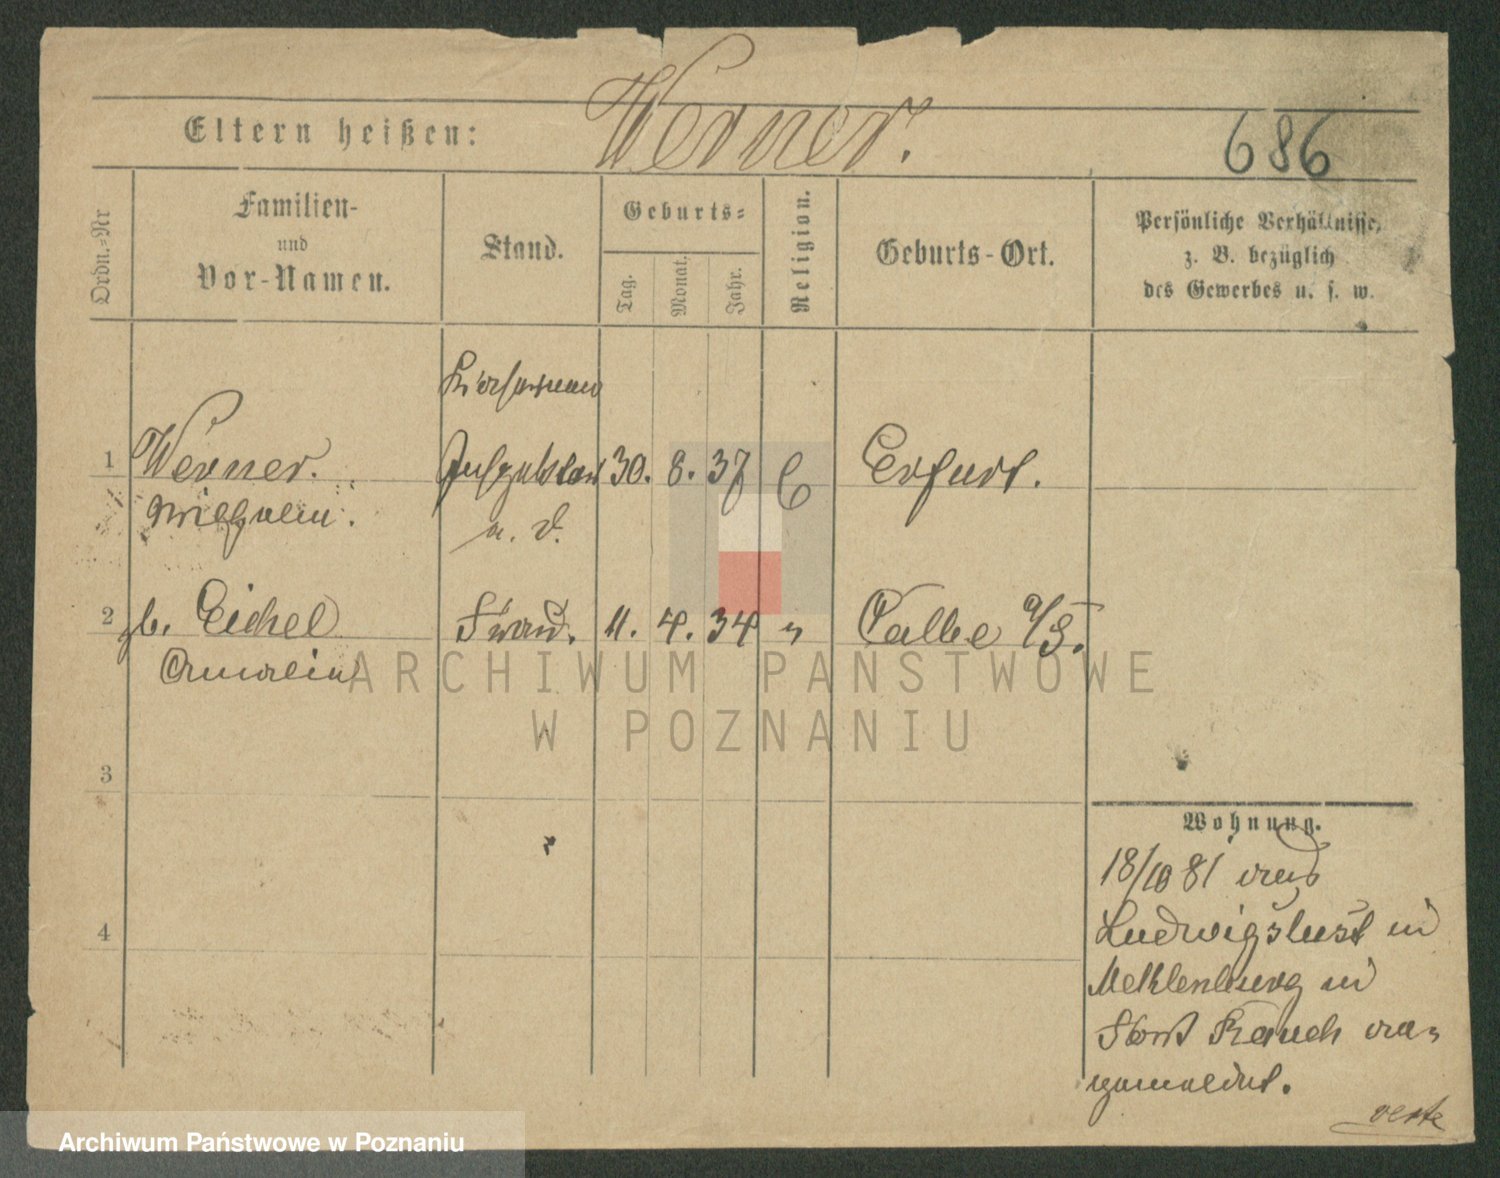 Werner.
Eltern heißen:
686
Ordn.-Nr
Familien-
und
Vor-Namen.
Stand.
Geburts-
Tag.
Monat.
Jahr.
Religion.
Geburts-Ort.
Persönliche Verhältnisse,
z. B. bezüglich
des Gewerbes u. s. w.
1 Werner. 30. 8. 37 Erfurt.
Wilhelm.
a. D.
2 gb. Eichel Frau. 11. 4. 34 " Calbe a/S.
Amalie
3
4
Wohnung.
18/10 81 nach
Ludwigslust in
Meklenburg in
gemeldet.
verte
ARCHIWUM PAŃSTWOWE
W POZNANIU
Archiwum Państwowe w Poznaniu